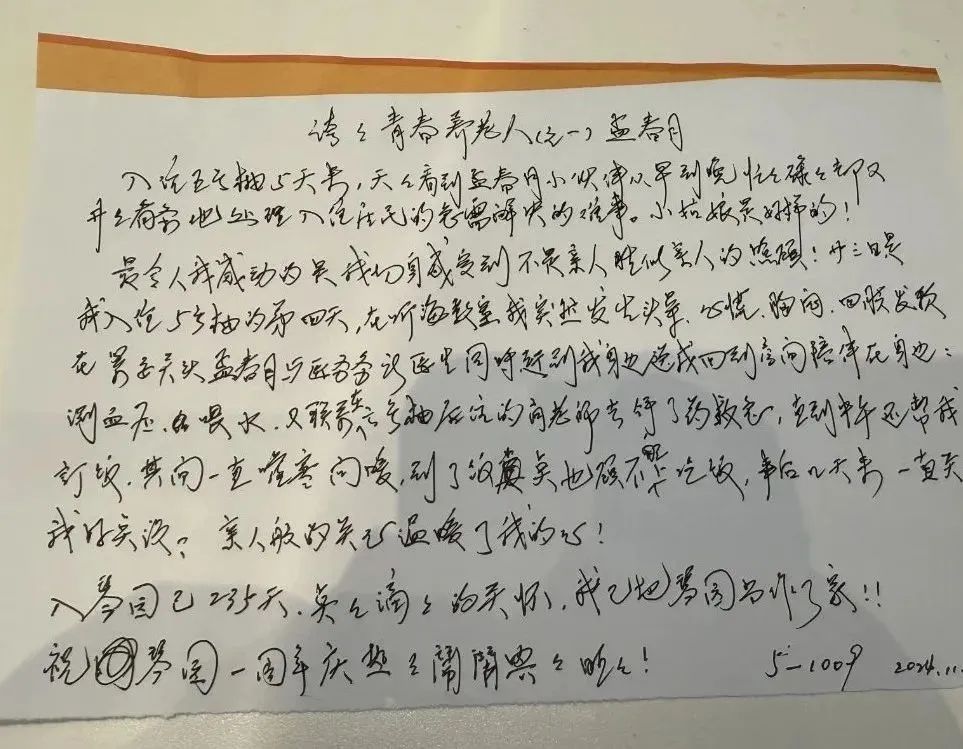 誇々青春养老人(之一)孟春月
入住五号抽5天来,天々看到孟春月小伙伴从早到晚忙々碌々却又
井々有条地处理入住住民的急需解决的难事。小姑娘是好样的!
最令人我感动的是我切身感受到不是亲人胜似亲人的照顾!廿三日是
我入住5号抽的第四天,在听海教室我突然发生头晕、心慌、胸闷、四肢发软
在紧要关头孟春月与医务务 医生同时赶到我身边送我回到房间陪伴在身边:
测血压、喂水、又联系在六号抽居住的 老师去 了药救急,直到中午还帮我
订饭,其间一直嘘寒问暖,到了饭点也顾不上吃饭,事后几天来一直关
我的实况,亲人般的关心温暖了我的心!
入琴园已235天,点々滴々的关怀,我已把琴园当作了家!!
祝琴园一周年庆热々闹闹典々 !
5-1009 2024.11.